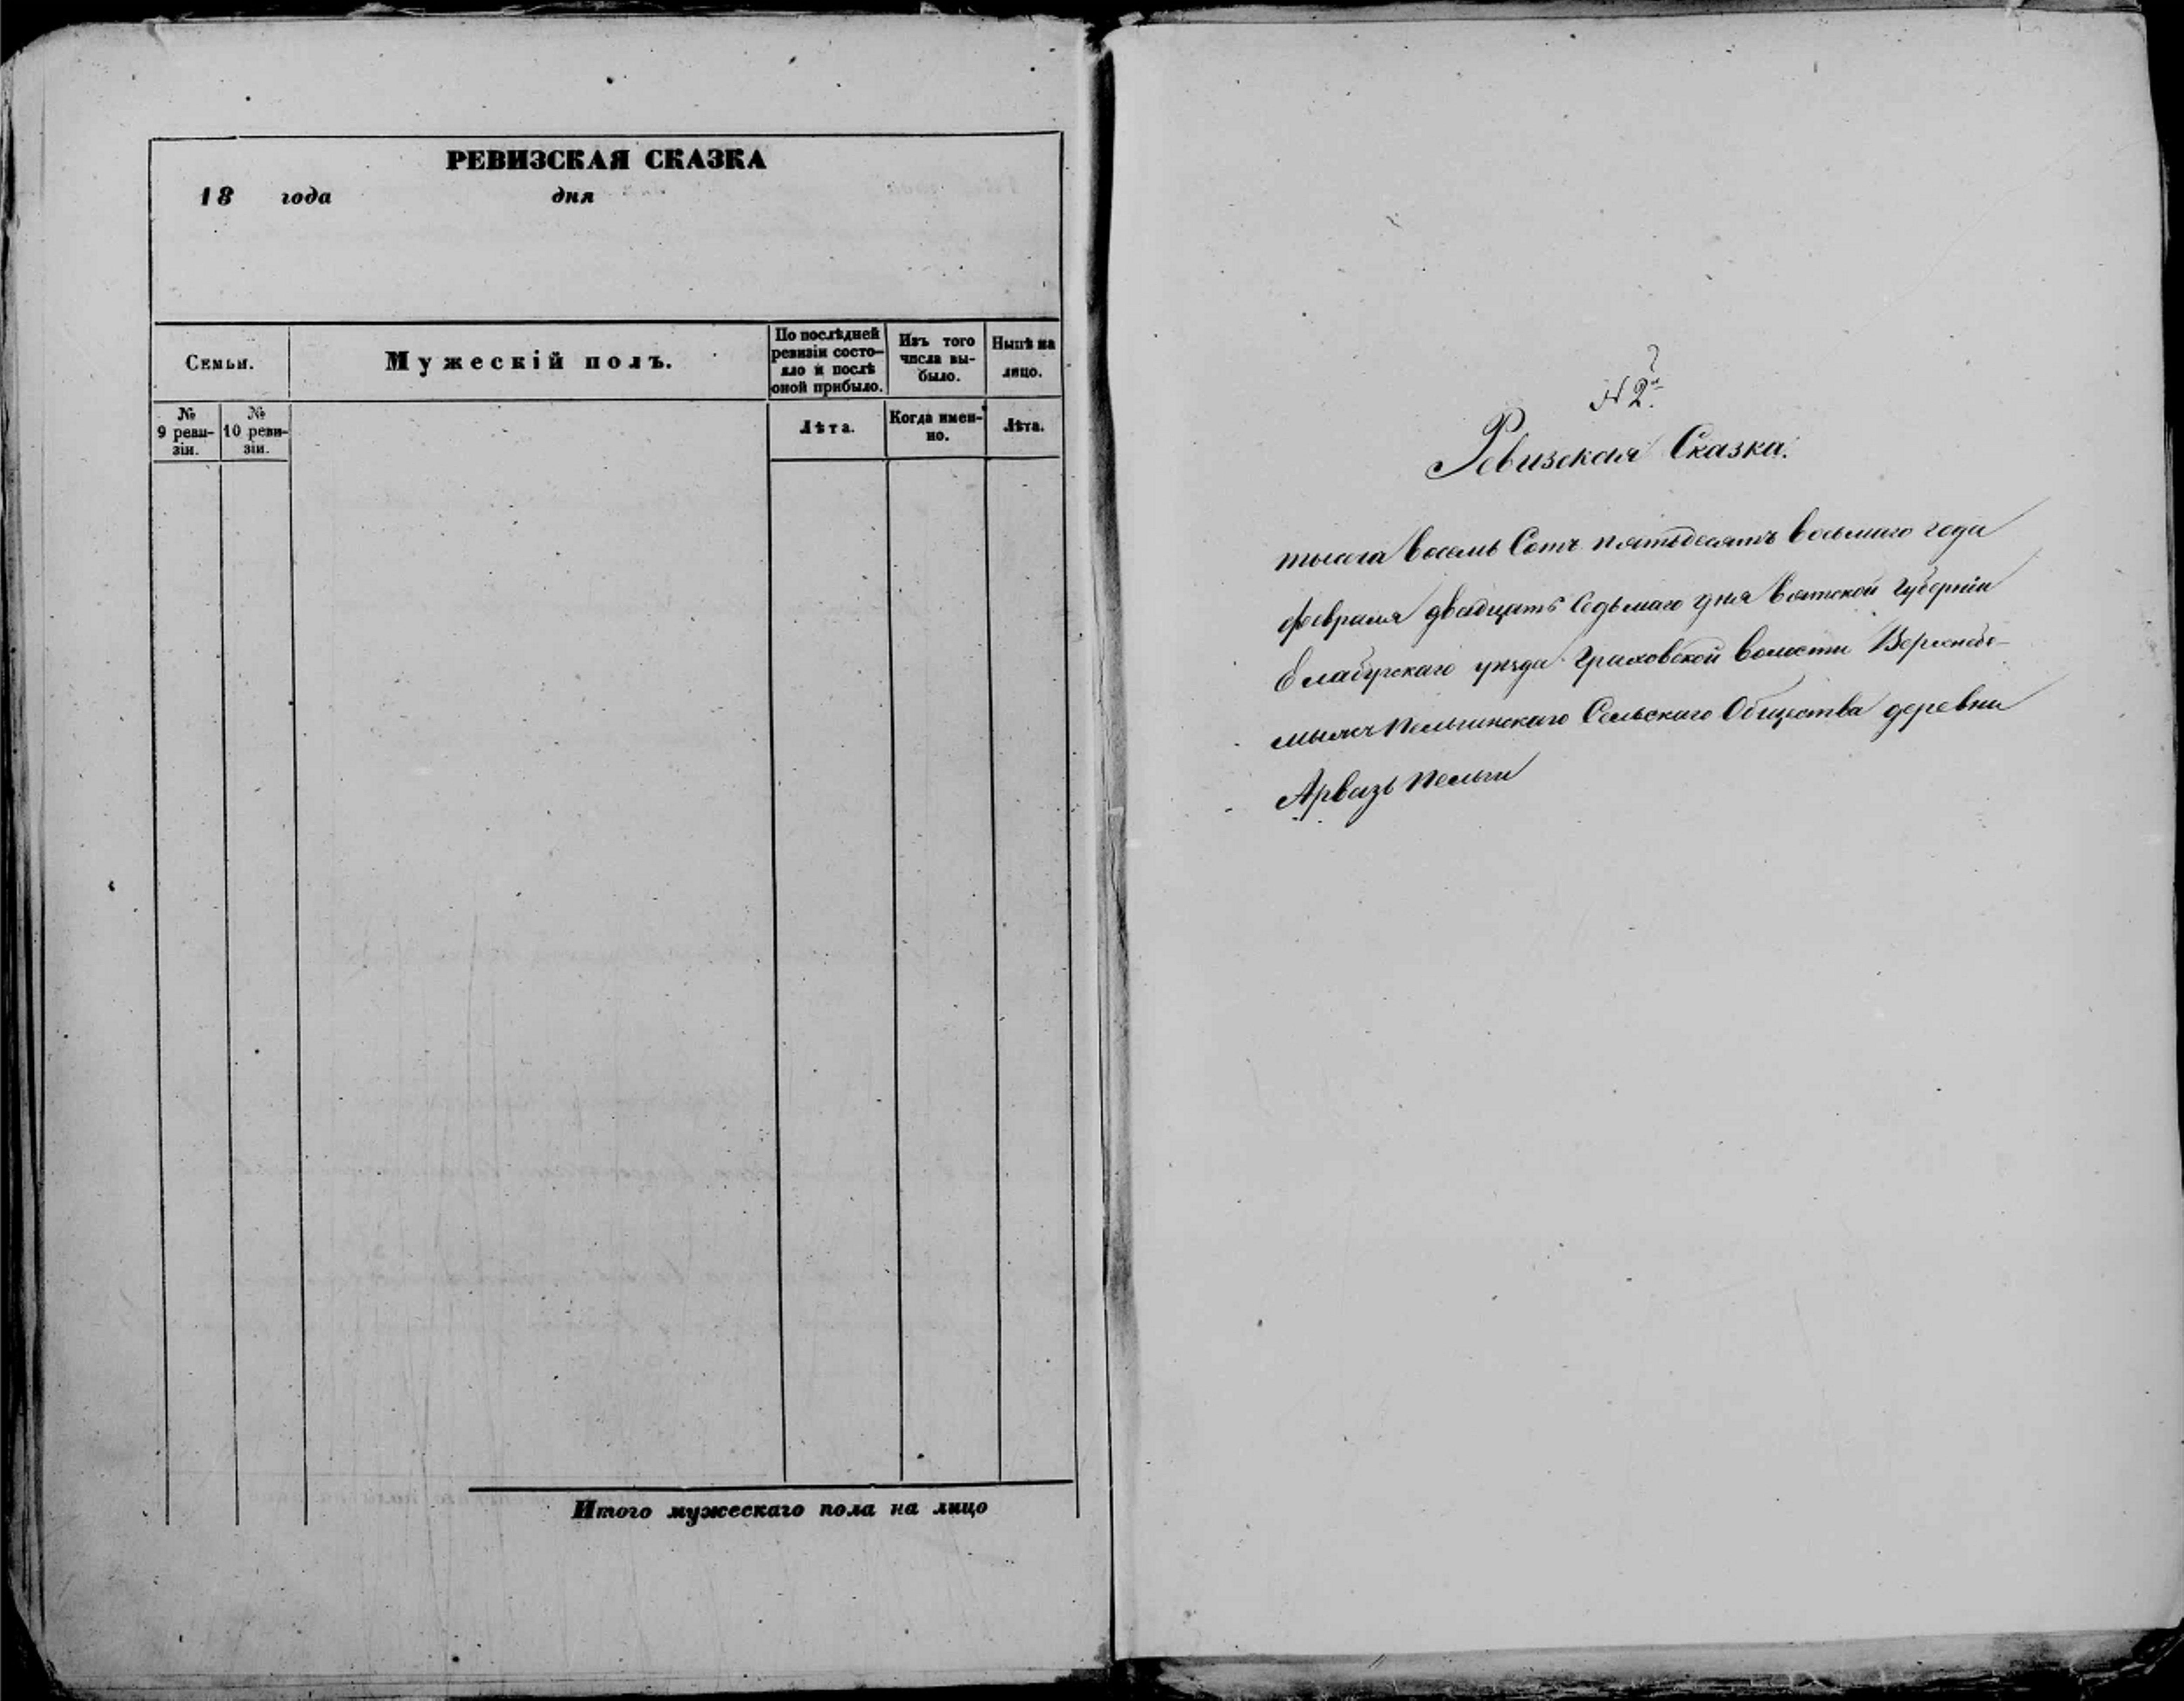 РЕВИЗСКАЯ СКАЗКА
18 года дня
Семьи.
Мужескій полъ.
По послѣдней ревизіи состо-
яло и послѣ
оной прибыло.
Изъ того
числа вы-
было.
Нынѣ на
лицо.
№
9 реви-
зіи.
№
10 реви-
зіи.
Лѣта.
Когда имен-
но.
Лѣта.
Итого мужескаго пола на лицо
№ 2й.
Ревизская Сказка.
тысеча восемь Сотъ пятьдесятъ восьмаго года
февраля двадцать седьмаго дня Вятской губерніи
Елабугскаго уѣзда Граховской волости
Сельскаго Общества деревни
Арвазь Пельги